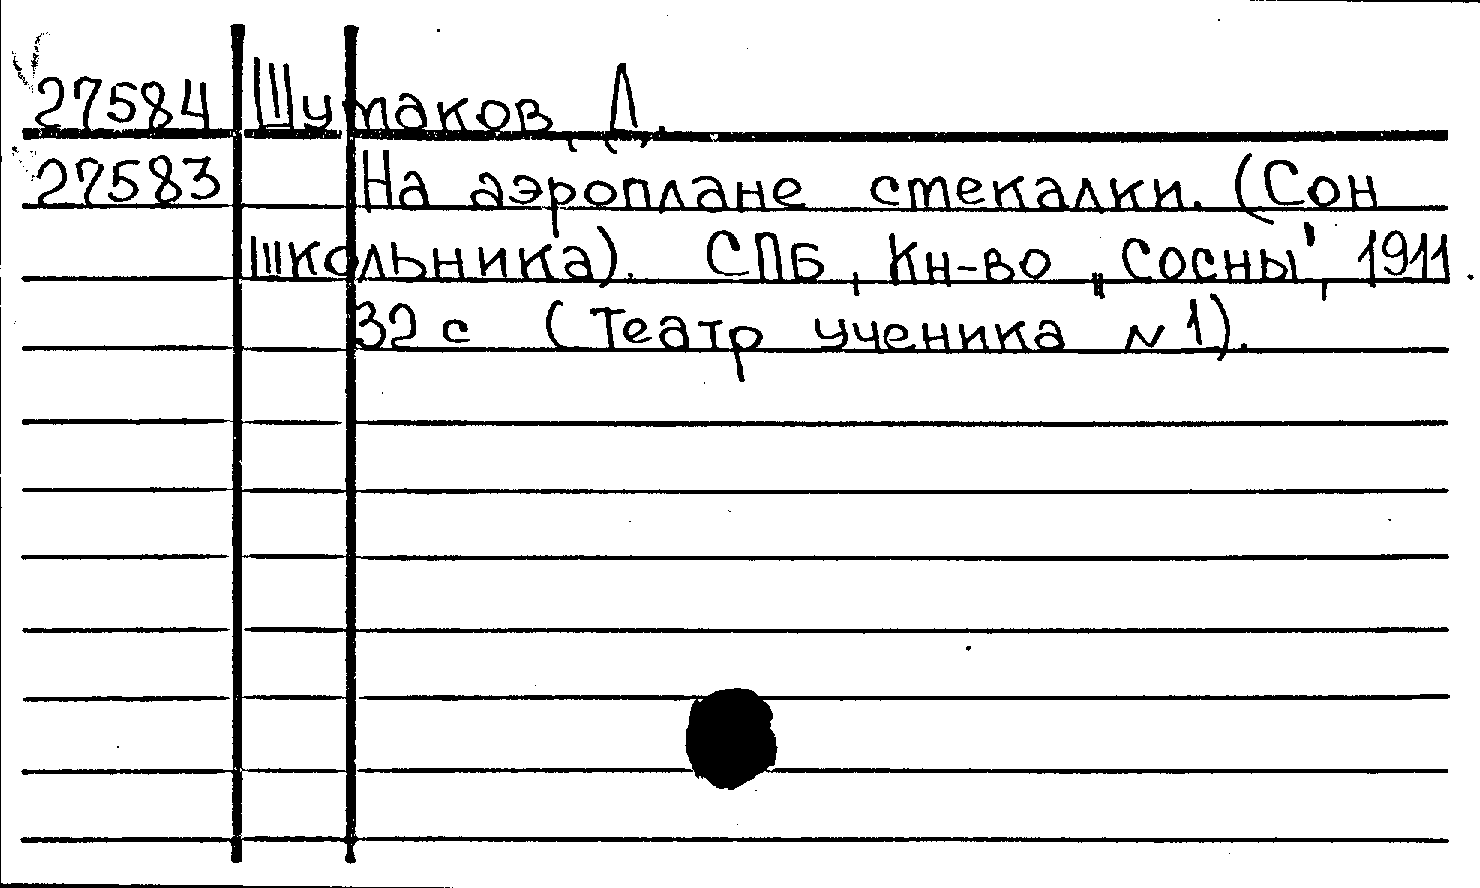 27584 Шутаков, Л.
27583 На аэроплане стекалки. (Сон
школьника). СПБ, Кн-во „Сосны", 1911.
32 с (Театр ученика N 1).